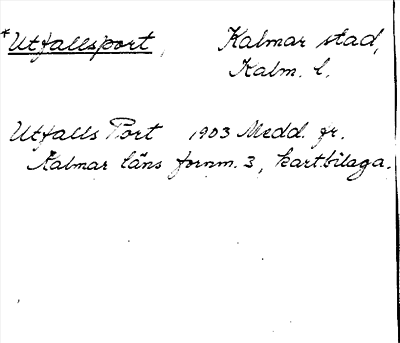 *Utfallsport, Kalmar stad,
Kalm. l.
Utfalls Port 1903 Medd. fr.
Kalmar läns fornm. 3, kartbilaga.